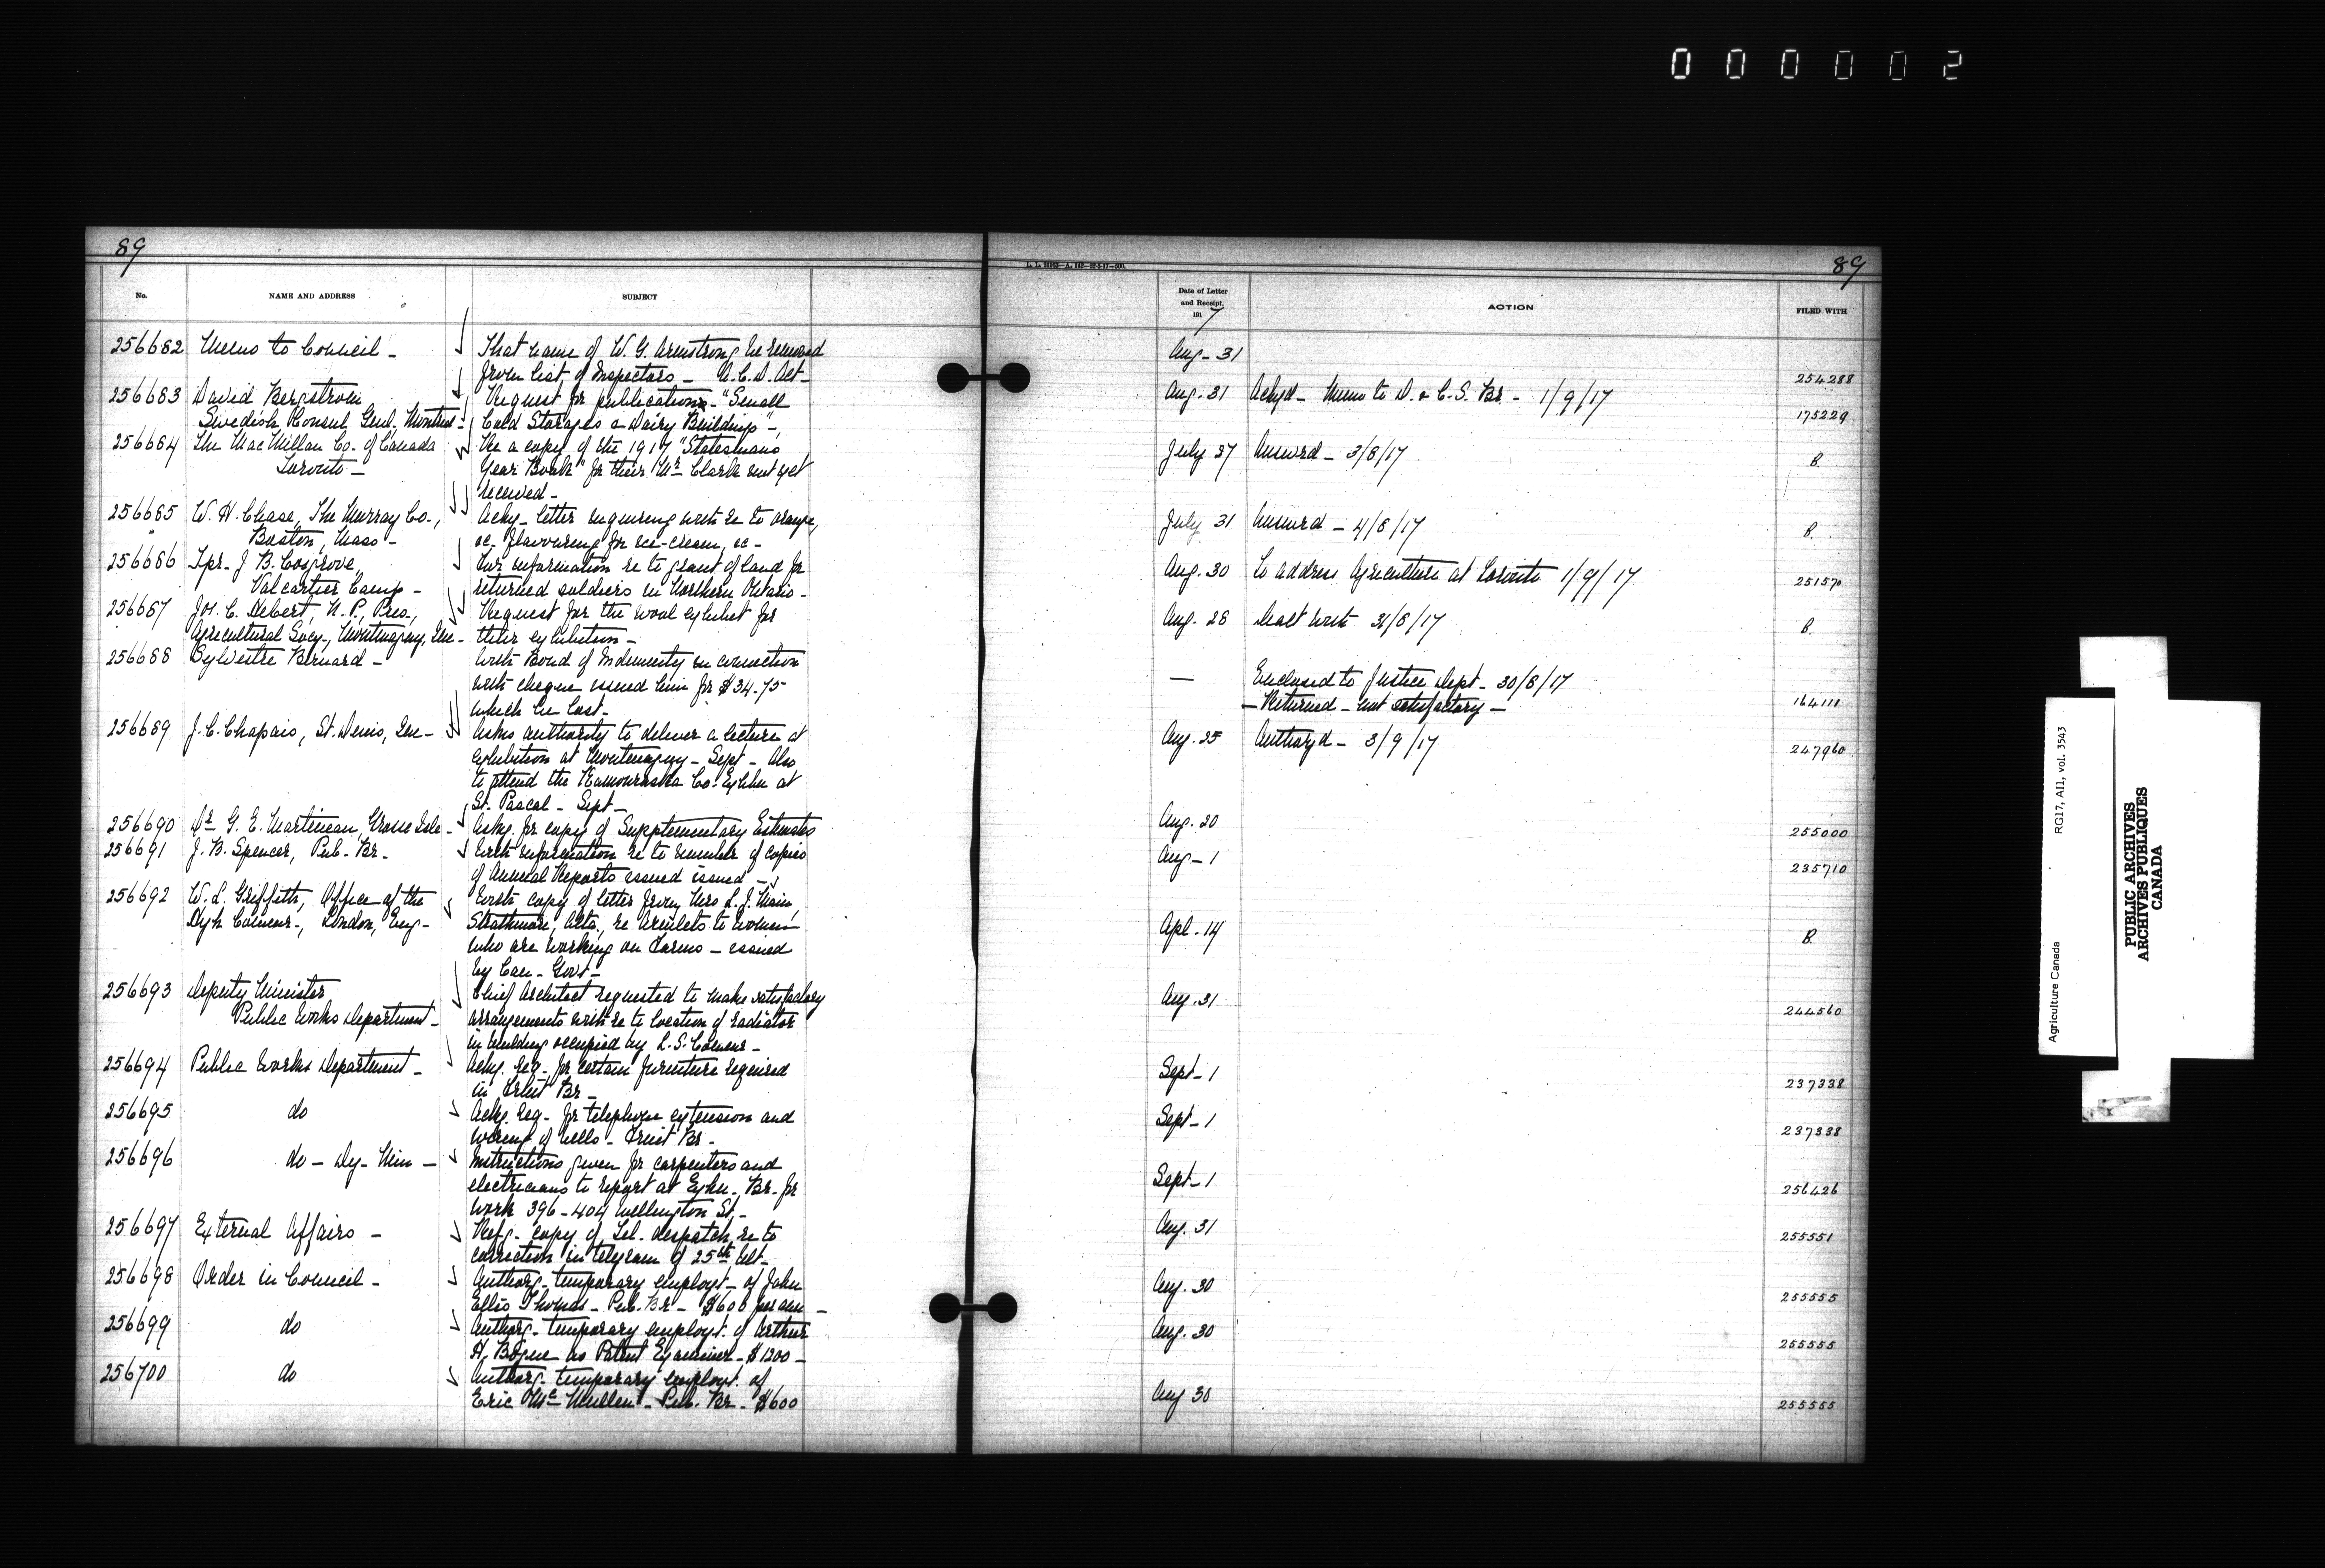 000002
89
89
L. L. 21169—A. 143—22-2-17—500.
No.
NAME AND ADDRESS
SUBJECT
Date of Letter
and Receipt,
1917
ACTION
FILED WITH
256682 Memo to Council - That name of W. G. Armstrong be removed Aug - 31
from list of Inspectors - A.C.D. Act - 254288
256683 David Bergstrom Request for publications - "Small Aug. 31 Ackgd - Memo to D. & C. S. Br. - 1/9/17
Swedish Consul Genl. Montreal - Cold Storages & Dairy Buildings", 175229
256684 The MacMillan Co. of Canada Re a copy of the 1917 "Statesmans July 27 Answrd - 3/8/17
Toronto - Year Book" for their Mr Clark not yet B.
received -
256685 W. H. Chase, The Murray Co., Ackg - letter enquiring with re to orange, July 31 Answrd - 4/8/17
Boston, Mass - &c. flavouring for ice-cream, &c - B.
256686 Spr. J. B. Cosgrove, For information re to grant of land for Aug. 30 To address Agriculture at Toronto 1/9/17
Valcartier Camp - returned soldiers in Northern Ontario - 251570
256687 Jos. C. Hebert, N. P., Pres., Request for the wool exhibit for Aug. 28 Dealt with 31/8/17
Agricultural Socy., Montmagny, Que - their exhibition - B.
256688 Sylvestre Bernard - With Bond of Indemnity in connection
with cheque issued him for $34.75 — Enclosed to Justice Dept - 30/8/17
which he lost - — Returned - not satisfactory — 164111
256689 J. C. Chapais, St. Denis, Que - Asks authority to deliver a lecture at Aug. 25 Authoryd - 3/9/17
exhibition at Montmagny - Sept - Also 247960
to attend the Kamouraska Co. Exhbn at
St. Pascal - Sept -
256690 Dr G. E. Martineau, Grosse Isle - Askg. for copy of Supplementary Estimates Aug. 20 255000
256691 J. B. Spencer, Pub. Br. - With information re to number of copies Aug - 1
of Annual Reports issued issued - 235710
256692 W. L. Griffith, Office of the With copy of letter from Mrs L. J. Main,
Hygh Commr., London, Eng - Strathmore, Alta., re Armlets to women Apl. 14
who are working on Farms - issued B.
by Can - Govt -
256693 Deputy Minister Chief Architect requested to make satisfactory Aug. 31
Public Works Department - arrangements with re to location of radiator 244560
in building occupied by L. S. Commr -
256694 Public Works Department - Ackg. req - for certain furniture required Sept - 1
in Fruit Br - 237338
256695 do Ackg. req - for telephone extension and Sept - 1
wiring of bells - Fruit Br - 237338
256696 do - Dy - Min - Instructions given for carpenters and
electricians to report at Exhn. Br. for Sept - 1
work 396-404 Wellington St - 256426
256697 External Affairs - Refg - copy of Tel. despatch, re to Aug. 31
correction in telegram of 25th Ult - 255551
256698 Order in Council - Authorg - temporary employt - of John Aug. 30
Ellis Thomas - Pub. Br - $600 per ann - 255555
256699 do Authorg - temporary employt. of Arthur Aug. 30
H. Bogue as Patent Examiner - $1200 - 255555
256700 do Authorg - temporary employt. of
Eric McMullen - Pub. Br - $600 Aug 30 255555
Agriculture Canada RG17, AII, vol. 3543
PUBLIC ARCHIVES
ARCHIVES PUBLIQUES
CANADA